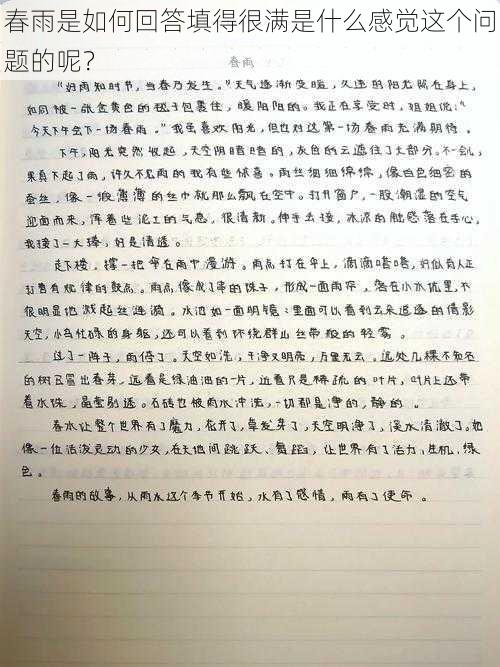 春雨是如何回答填得很满是什么感觉这个问
题的呢？
春雨
“好雨知时节，当春乃发生。”天气逐渐变暖，久违的阳光照在身上，
如同被一张金黄色的毯子包裹住，暖阳阳的。我正在享受时，姐姐说：“
今天下午会下一场春雨。”我虽喜欢阳光，但也对这第一场春雨充满期待。
下午，阳光突然收起，天空阴暗暗的，灰色的云遮住了大部分。不一会儿，
果真下起了雨，许久不见雨的我有些惊喜。雨丝细细绵绵，像白色细密的
蚕丝，像一缎薄薄的丝巾就那么飘在空中。打开窗户，一股潮湿的空气
迎面而来，浑着些泥土的气息，很清新。伸手去接，冰凉的触感落在手心，
我接了一大捧，好是清透。
走下楼，撑一把伞在雨中漫游。雨点打在伞上，滴滴嗒嗒，好似有人正
打着有规律的鼓点。雨点像成了串的珠子，形成一面雨帘，落在小水优里，不
很明显地溅起丝涟漪。水洼如一面明镜：里面可以看到云朵追逐的倩影
天空，小鸟忙碌的身躯，还可以看到环绕群山丝带般的轻雾。
过了一阵子，雨停了。天空如洗，干净又明亮，万里无云。远处几棵不知名
的树已冒出春芽，远看是绿油油的一片，近看只是稀疏的叶片，叶片上还带
着水珠，晶莹剔透。石砖也被雨水冲洗，一切都是净的，静的。
春水让整个世界有了魔力，花开了，草发芽了，天空明净了，溪水清澈了。她
像一位活泼灵动的少女，在天地间跳跃、舞蹈，让世界有了活力，生机，绿
色。
春雨的故事，从雨水这个季节开始，水有了感情，雨有了使命。